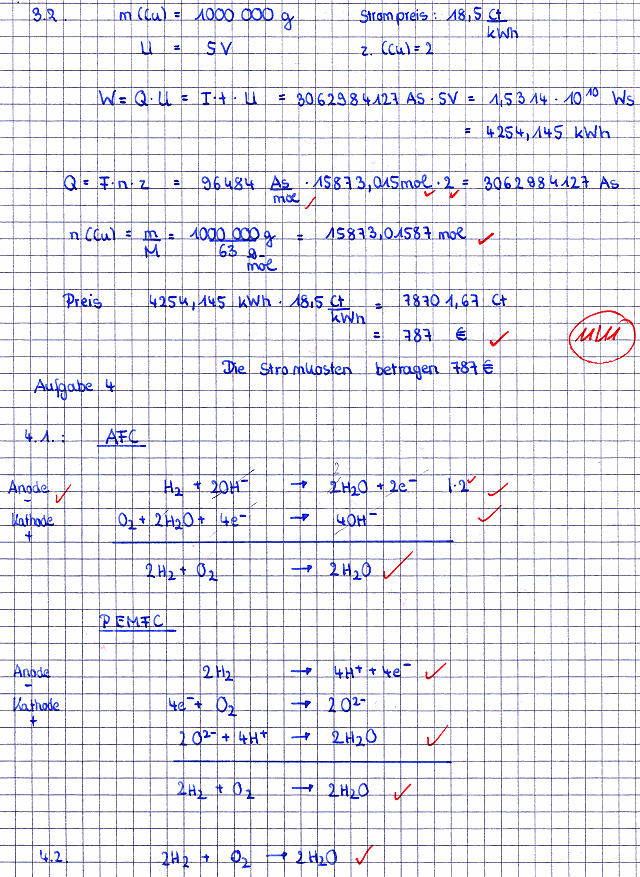 3.2 m(Cu) = 1000 000 g Strompreis: 18,5 Ct/kWh
U = 5V z (Cu) = 2
W = Q·U = I·t·U = 3062984127 AS · 5V = 1,5314 · 10^10 Ws
= 4254,145 kWh
Q = F·n·z = 96484 As/mol · 15873,015mol · 2 = 3062984127 As
n(Cu) = m/M = 1000 000 g / 63 g/mol = 15873,01587 mol
Preis 4254,145 kWh · 18,5 Ct/kWh = 78701,67 Ct
= 787 €
Die Stromkosten betragen 787 €
Aufgabe 4
4.1.: AFC
Anode - H₂ + 2OH⁻ → 2H₂O + 2e⁻ |·2
Kathode + O₂ + 2H₂O + 4e⁻ → 4OH⁻
2H₂ + O₂ → 2H₂O
PEMFC
Anode - 2H₂ → 4H⁺ + 4e⁻
Kathode + 4e⁻ + O₂ → 2O²⁻
2O²⁻ + 4H⁺ → 2H₂O
2H₂ + O₂ → 2H₂O
4.2. 2H₂ + O₂ → 2H₂O